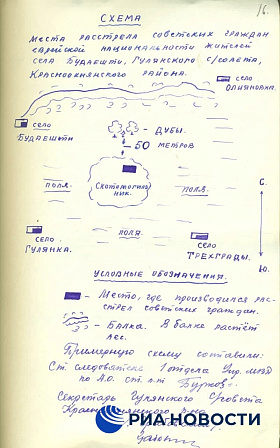 16.
СХЕМА
Места расстрела советских граждан
еврейской национальности жителей
села Будаешти, Гулянского с/совета,
Красноокнянского района.
село
Одлияновка.
село
Будаешти
- Дубы.
- 50
метров
поля.
Скотомогиль
ник.
поля.
С.
село
Гулянка.
поля.
село
Трехграды.
Ю.
Условные обозначения.
- Место, где производился рас-
стрел советских граждан.
- Балка. В балке растёт
лес.
Примерную схему составили:
Ст. следователь 1 отдела Упр. МВД
по А.О.
Секретарь Гулянского с/совета
РИА НОВОСТИ